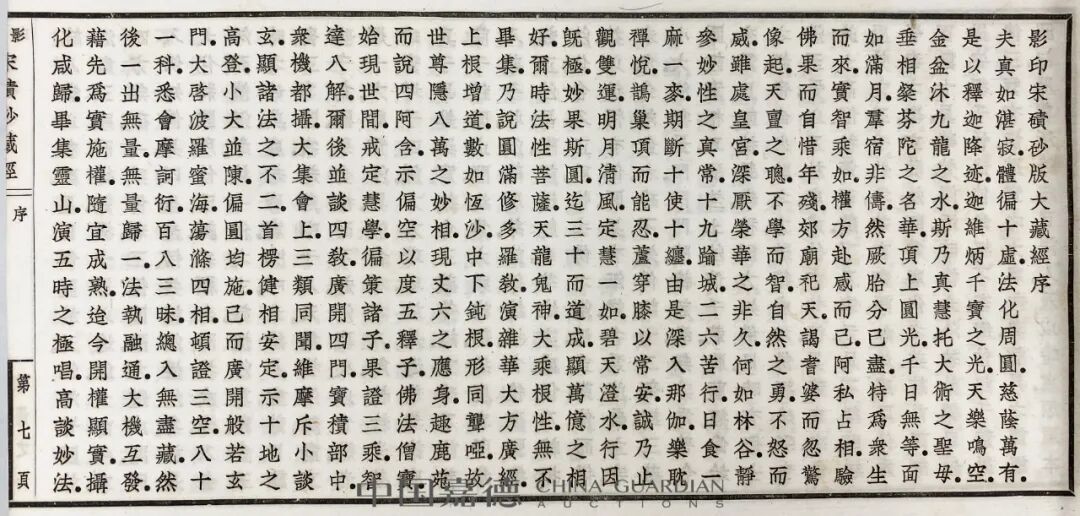 影印宋磧砂版大藏經序
夫真如湛寂。體徧十虛。法化周圓。慈蔭萬有。
是以釋迦降迹。迦維炳千寶之光。天樂鳴空。
金盆沐九龍之水。斯乃真慧托大術之聖母。
垂相粲芬陀之名華。頂上圓光。千日無等。面
如滿月。羣宿非儔。然厥胎分已盡。特爲衆生
而來。實智乘如。權方赴感而已。阿私占相。驗
佛果而自惜年殘。郊廟祀天。謁者婆而忽驚
像起。天亶之聰。不學而智。自然之勇。不怒而
威。雖處皇宮。深厭榮華之非久。何如林谷。靜
參妙性之真常。十九踰城。二六苦行。日食一
麻一麥。期斷十使十纏。由是深入那伽。樂耽
禪悅。鵲巢頂而能忍。蘆穿膝以常安。誠乃止
觀雙運。明月清風。定慧一如。碧天澄水。行因
旣極。妙果斯圓。迄三十而道成。顯萬億之相
好。爾時法性菩薩。天龍鬼神。大乘根性。無不
畢集。乃說圓滿修多羅敎。演雜華大方廣經。
上根增道。數如恆沙。中下鈍根。形同聾啞。故
世尊隱八萬之妙相。現丈六之應身。趣鹿苑
而說四阿含。示偏空以度五釋子。佛法僧寶
始現世間。戒定慧學。偏策諸子。果證三乘。智
達八解。爾後並談四敎。廣開四門。寶積部中
衆機都攝。大集會上。三類同聞。維摩斥小談
玄。顯諸法之不二。首楞健相安定。示十地之
高登。小大並陳。偏圓均施。已而廣開般若玄
門。大啓波羅蜜海。蕩滌四相。頓證三空。八十
一科。悉會摩訶衍。百八三昧。總入無盡藏。然
後一出無量。無量歸一。法執融通。大機互發。
藉先爲實施權。隨宜成熟。迨今開權顯實。攝
化咸歸。畢集靈山。演五時之極唱。高談妙法。
影宋磧砂藏經
序
第七頁
中国嘉德 CHINA GUARDIAN
AUCTIONS